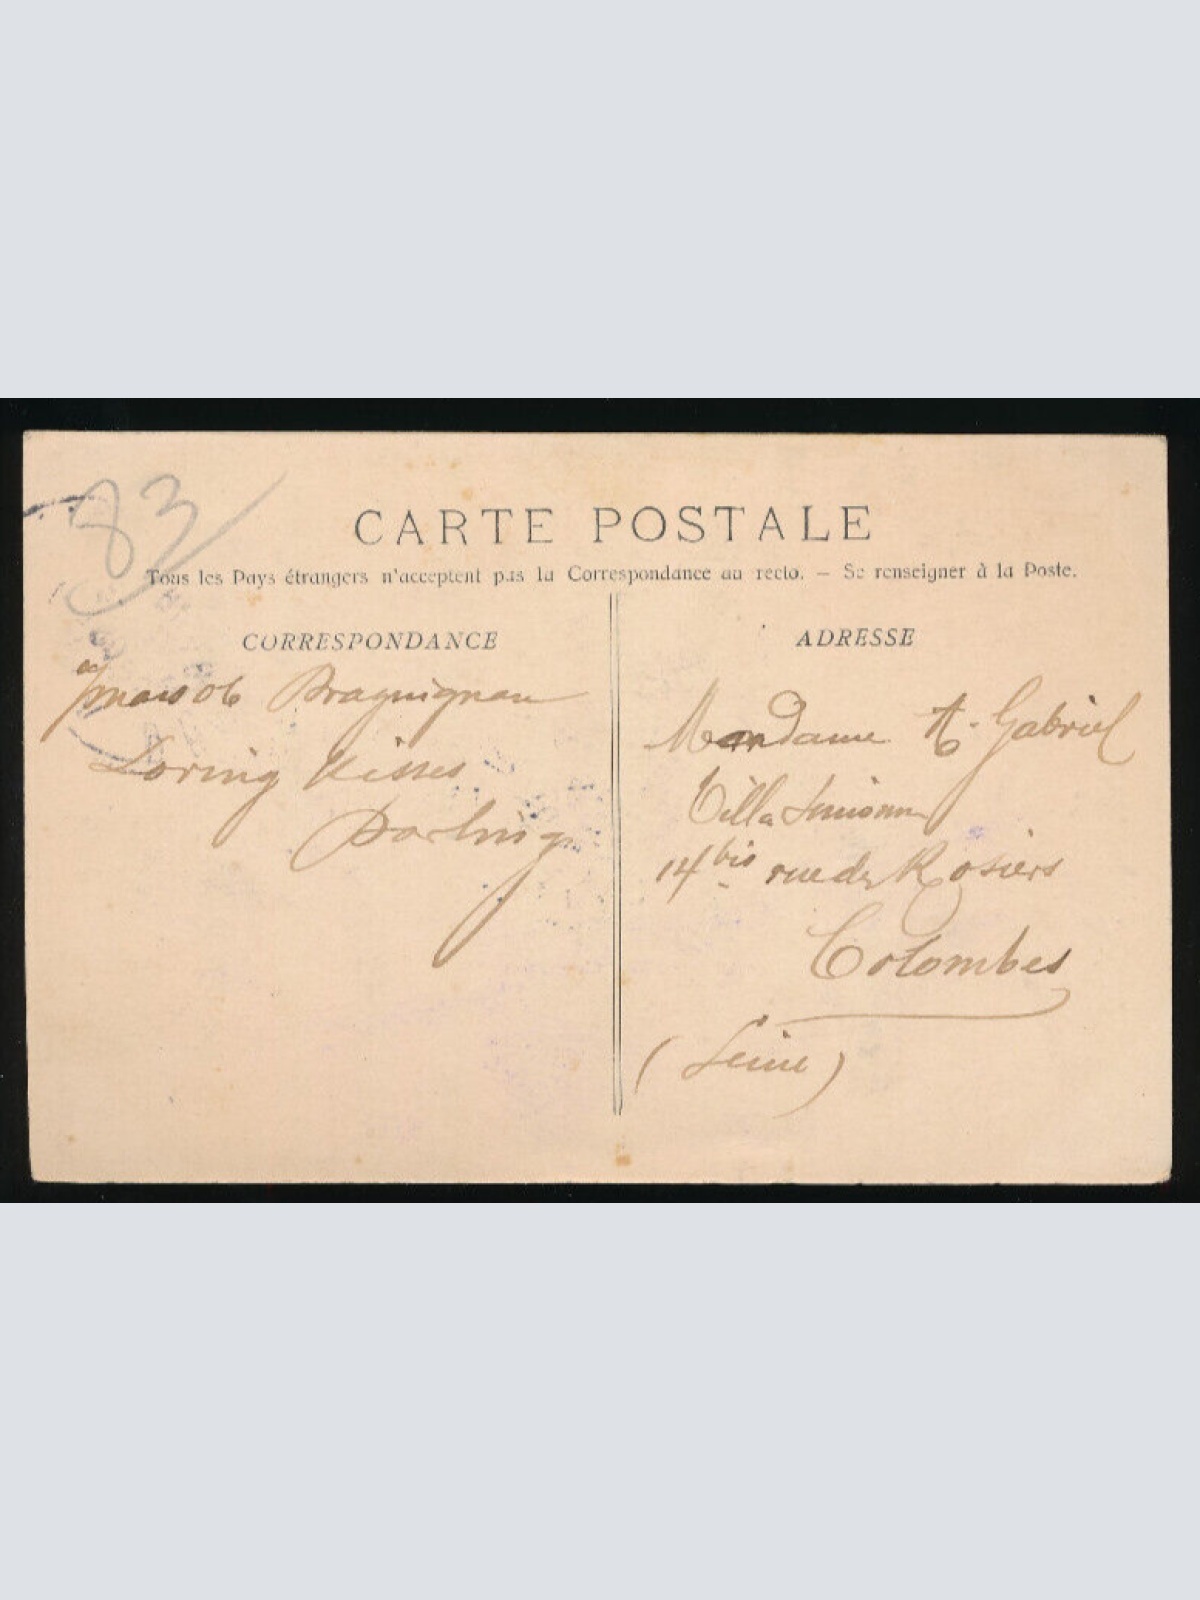 83
CARTE POSTALE
Tous les Pays étrangers n'acceptent pas la Correspondance au recto. — Se renseigner à la Poste.
CORRESPONDANCE
mars 06 Draguignan
Loving Kisses
Darling
ADRESSE
Madame A. Gabriel
Villa
14 bis rue des Rosiers
Colombes
(Seine)